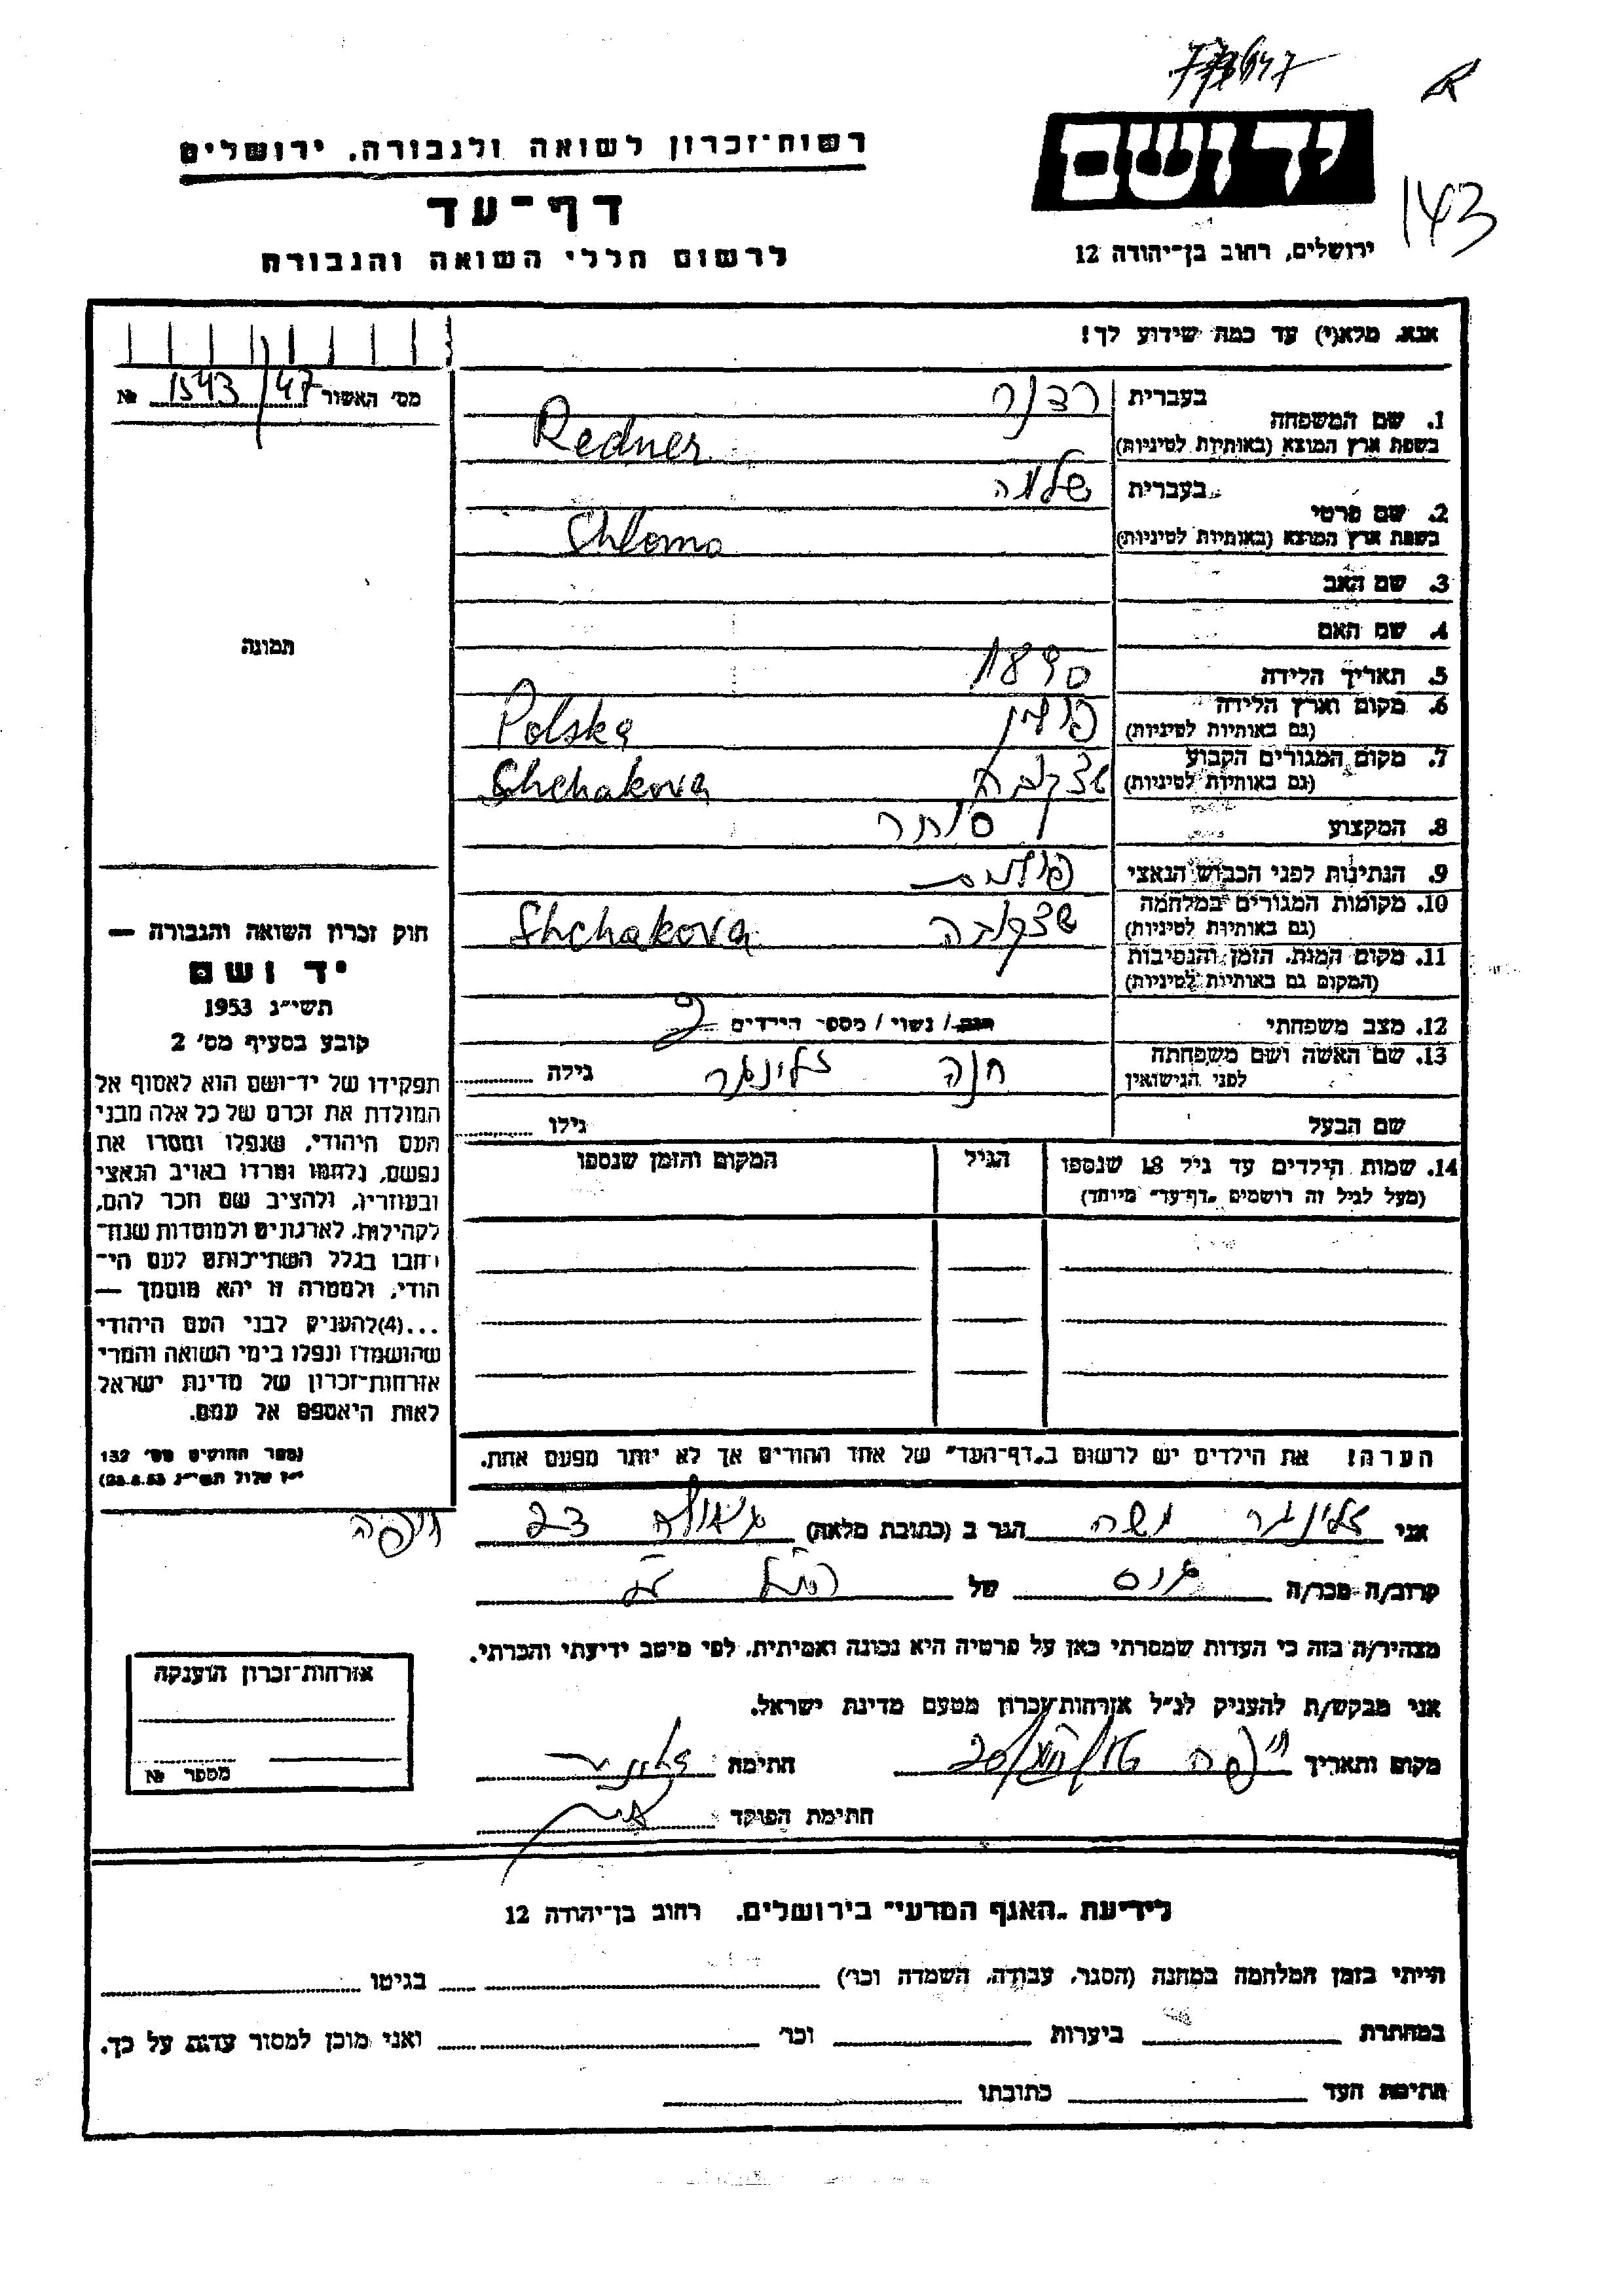 רשות־זכרון לשואה ולגבורה, ירושלים
דף־עד
לרשום חללי השואה והגבורה
יד ושם
143
ירושלים, רחוב בן־יהודה 12
אנא, מלא(י) עד כמה שידוע לך!
מס׳ האשור 1543/47 №
תמונה
1. שם המשפחה
בעברית רדנר
בשפת ארץ המוצא (באותיות לטיניות) Redner
2. שם פרטי
בעברית שלמה
בשפת ארץ המוצא (באותיות לטיניות) Shlomo
3. שם האב
4. שם האם
5. תאריך הלידה 1890
6. מקום וארץ הלידה (גם באותיות לטיניות) פולין Polska
7. מקום המגורים הקבוע (גם באותיות לטיניות) שצקובה Shchakova
8. המקצוע סוחר
9. הנתינות לפני הכבוש הנאצי
10. מקומות המגורים במלחמה (גם באותיות לטיניות) שצקובה Shchakova
11. מקום המות, הזמן והנסיבות (המקום גם באותיות לטיניות)
12. מצב משפחתי רווק/ נשוי/ מספר הילדים 2
13. שם האשה ושם משפחתה לפני הנישואין חנה זלינגר גילה
שם הבעל גילו
14. שמות הילדים עד גיל 18 שנספו הגיל המקום והזמן שנספו
(מעל לגיל זה רושמים „דף־עד״ מיוחד)
הערה! את הילדים יש לרשום ב„דף־העד״ של אחד ההורים אך לא יותר מפעם אחת.
חוק זכרון השואה והגבורה —
יד ושם
תשי״ג 1953
קובע בסעיף מס׳ 2
תפקידו של יד־ושם הוא לאסוף אל
המולדת את זכרם של כל אלה מבני
העם היהודי, שנפלו ומסרו את
נפשם, נלחמו ומרדו באויב הנאצי
ובעוזריו, ולהציב שם וזכר להם,
לקהילות, לארגונים ולמוסדות שנח־
רבו בגלל השתייכותם לעם הי־
הודי, ולמטרה זו יהא מוסמך —
...(4) להעניק לבני העם היהודי
שהושמדו ונפלו בימי השואה והמרי
אזרחות־זכרון של מדינת ישראל
לאות היאספם אל עמם.
(ספר החוקים מס׳ 132
י״ז אלול תשי״ג 28.8.53)
אני זלינגר משה הגר ב (כתובת מלאה) גאולה 23 חיפה
קרוב/ה מכר/ה גיס של
מצהיר/ה בזה כי העדות שמסרתי כאן על פרטיה היא נכונה ואמיתית, לפי מיטב ידיעתי והכרתי.
אני מבקש/ת להעניק לנ״ל אזרחות־זכרון מטעם מדינת ישראל.
מקום ותאריך חיפה חתימה זלינגר
חתימת הפוקד
אזרחות־זכרון הוענקה
מספר №
לידיעת „האגף המדעי״ בירושלים, רחוב בן־יהודה 12
הייתי בזמן המלחמה במחנה (הסגר, עבודה, השמדה וכו׳) בגיטו
במחתרת ביערות וכו׳ ואני מוכן למסור עדות על כך.
חתימת העד כתובתו